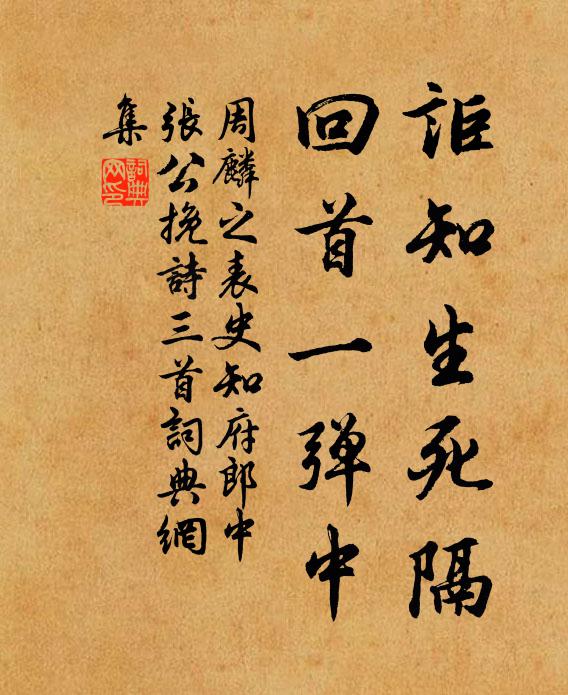 詎知生死隔
回首一弹中
周麟之表史知府郎中
張公挽詩三首詞典網
集
詞典網印